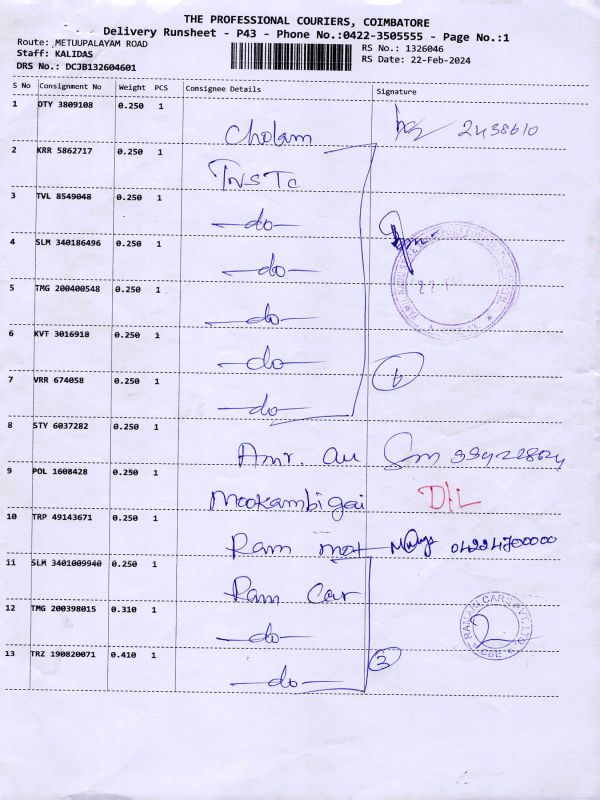 THE PROFESSIONAL COURIERS, COIMBATORE
Delivery Runsheet - P43 - Phone No.:0422-3505555 - Page No.:1
Route: METUUPALAYAM ROAD
Staff: KALIDAS
DRS No.: DCJB132604601
RS No.: 1326046
RS Date: 22-Feb-2024
S No Consignment No Weight PCS Consignee Details Signature
1 DTY 3809108 0.250 1 Cholam 2438610
2 KRR 5862717 0.250 1 TNSTC
3 TVL 8549048 0.250 1 -do-
4 SLM 340186496 0.250 1 -do-
5 TMG 200400548 0.250 1 -do-
6 KVT 3016918 0.250 1 -do-
7 VRR 674058 0.250 1 -do-
6
8 STY 6037282 0.250 1 Amr. au
9 POL 1608428 0.250 1 Mookambigai D/L
10 TRP 49143671 0.250 1 Ram mot 04224700000
11 SLM 3401009940 0.250 1 Ram Car
12 TMG 200398015 0.310 1 -do-
RAMANI CARS PVT. LTD
CBE
13 TRZ 190820071 0.410 1 -do- 3